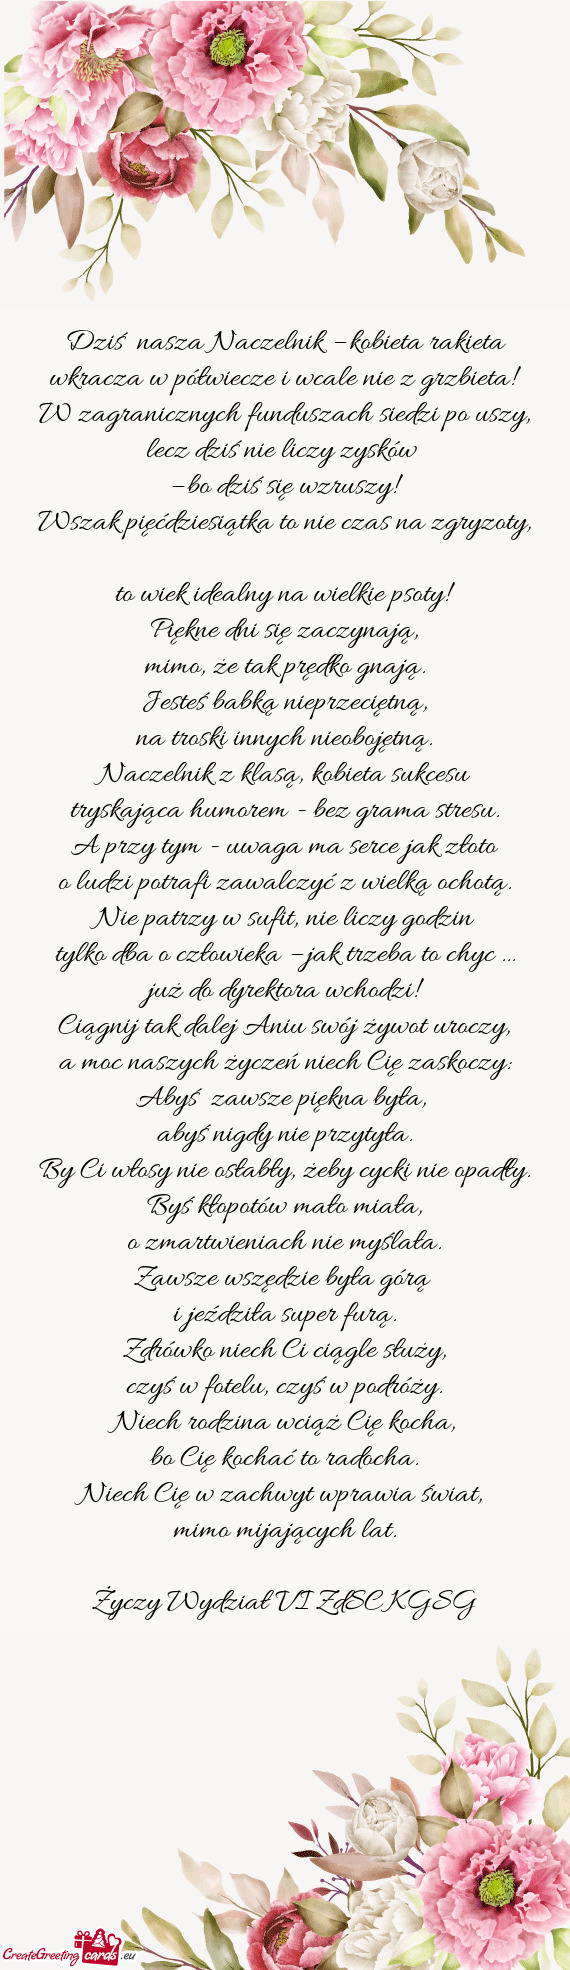 Dziś nasza Naczelnik – kobieta rakieta
wkracza w półwiecze i wcale nie z grzbieta!
W zagranicznych funduszach siedzi po uszy,
lecz dziś nie liczy zysków
– bo dziś się wzruszy!
Wszak pięćdziesiątka to nie czas na zgryzoty,
to wiek idealny na wielkie psoty!
Piękne dni się zaczynają,
mimo, że tak prędko gnają.
Jesteś babką nieprzeciętną,
na troski innych nieobojętną.
Naczelnik z klasą, kobieta sukcesu
tryskająca humorem - bez grama stresu.
A przy tym - uwaga ma serce jak złoto
o ludzi potrafi zawalczyć z wielką ochotą.
Nie patrzy w sufit, nie liczy godzin
tylko dba o człowieka – jak trzeba to chyc ...
już do dyrektora wchodzi!
Ciągnij tak dalej Aniu swój żywot uroczy,
a moc naszych życzeń niech Cię zaskoczy:
Abyś zawsze piękna była,
abyś nigdy nie przytyła.
By Ci włosy nie osłabły, żeby cycki nie opadły.
Byś kłopotów mało miała,
o zmartwieniach nie myślała.
Zawsze wszędzie była górą
i jeździła super furą.
Zdrówko niech Ci ciągle służy,
czyś w fotelu, czyś w podróży.
Niech rodzina wciąż Cię kocha,
bo Cię kochać to radocha.
Niech Cię w zachwyt wprawia świat,
mimo mijających lat.
Życzy Wydział VI ZdSC KGSG
CreateGreeting cards .eu